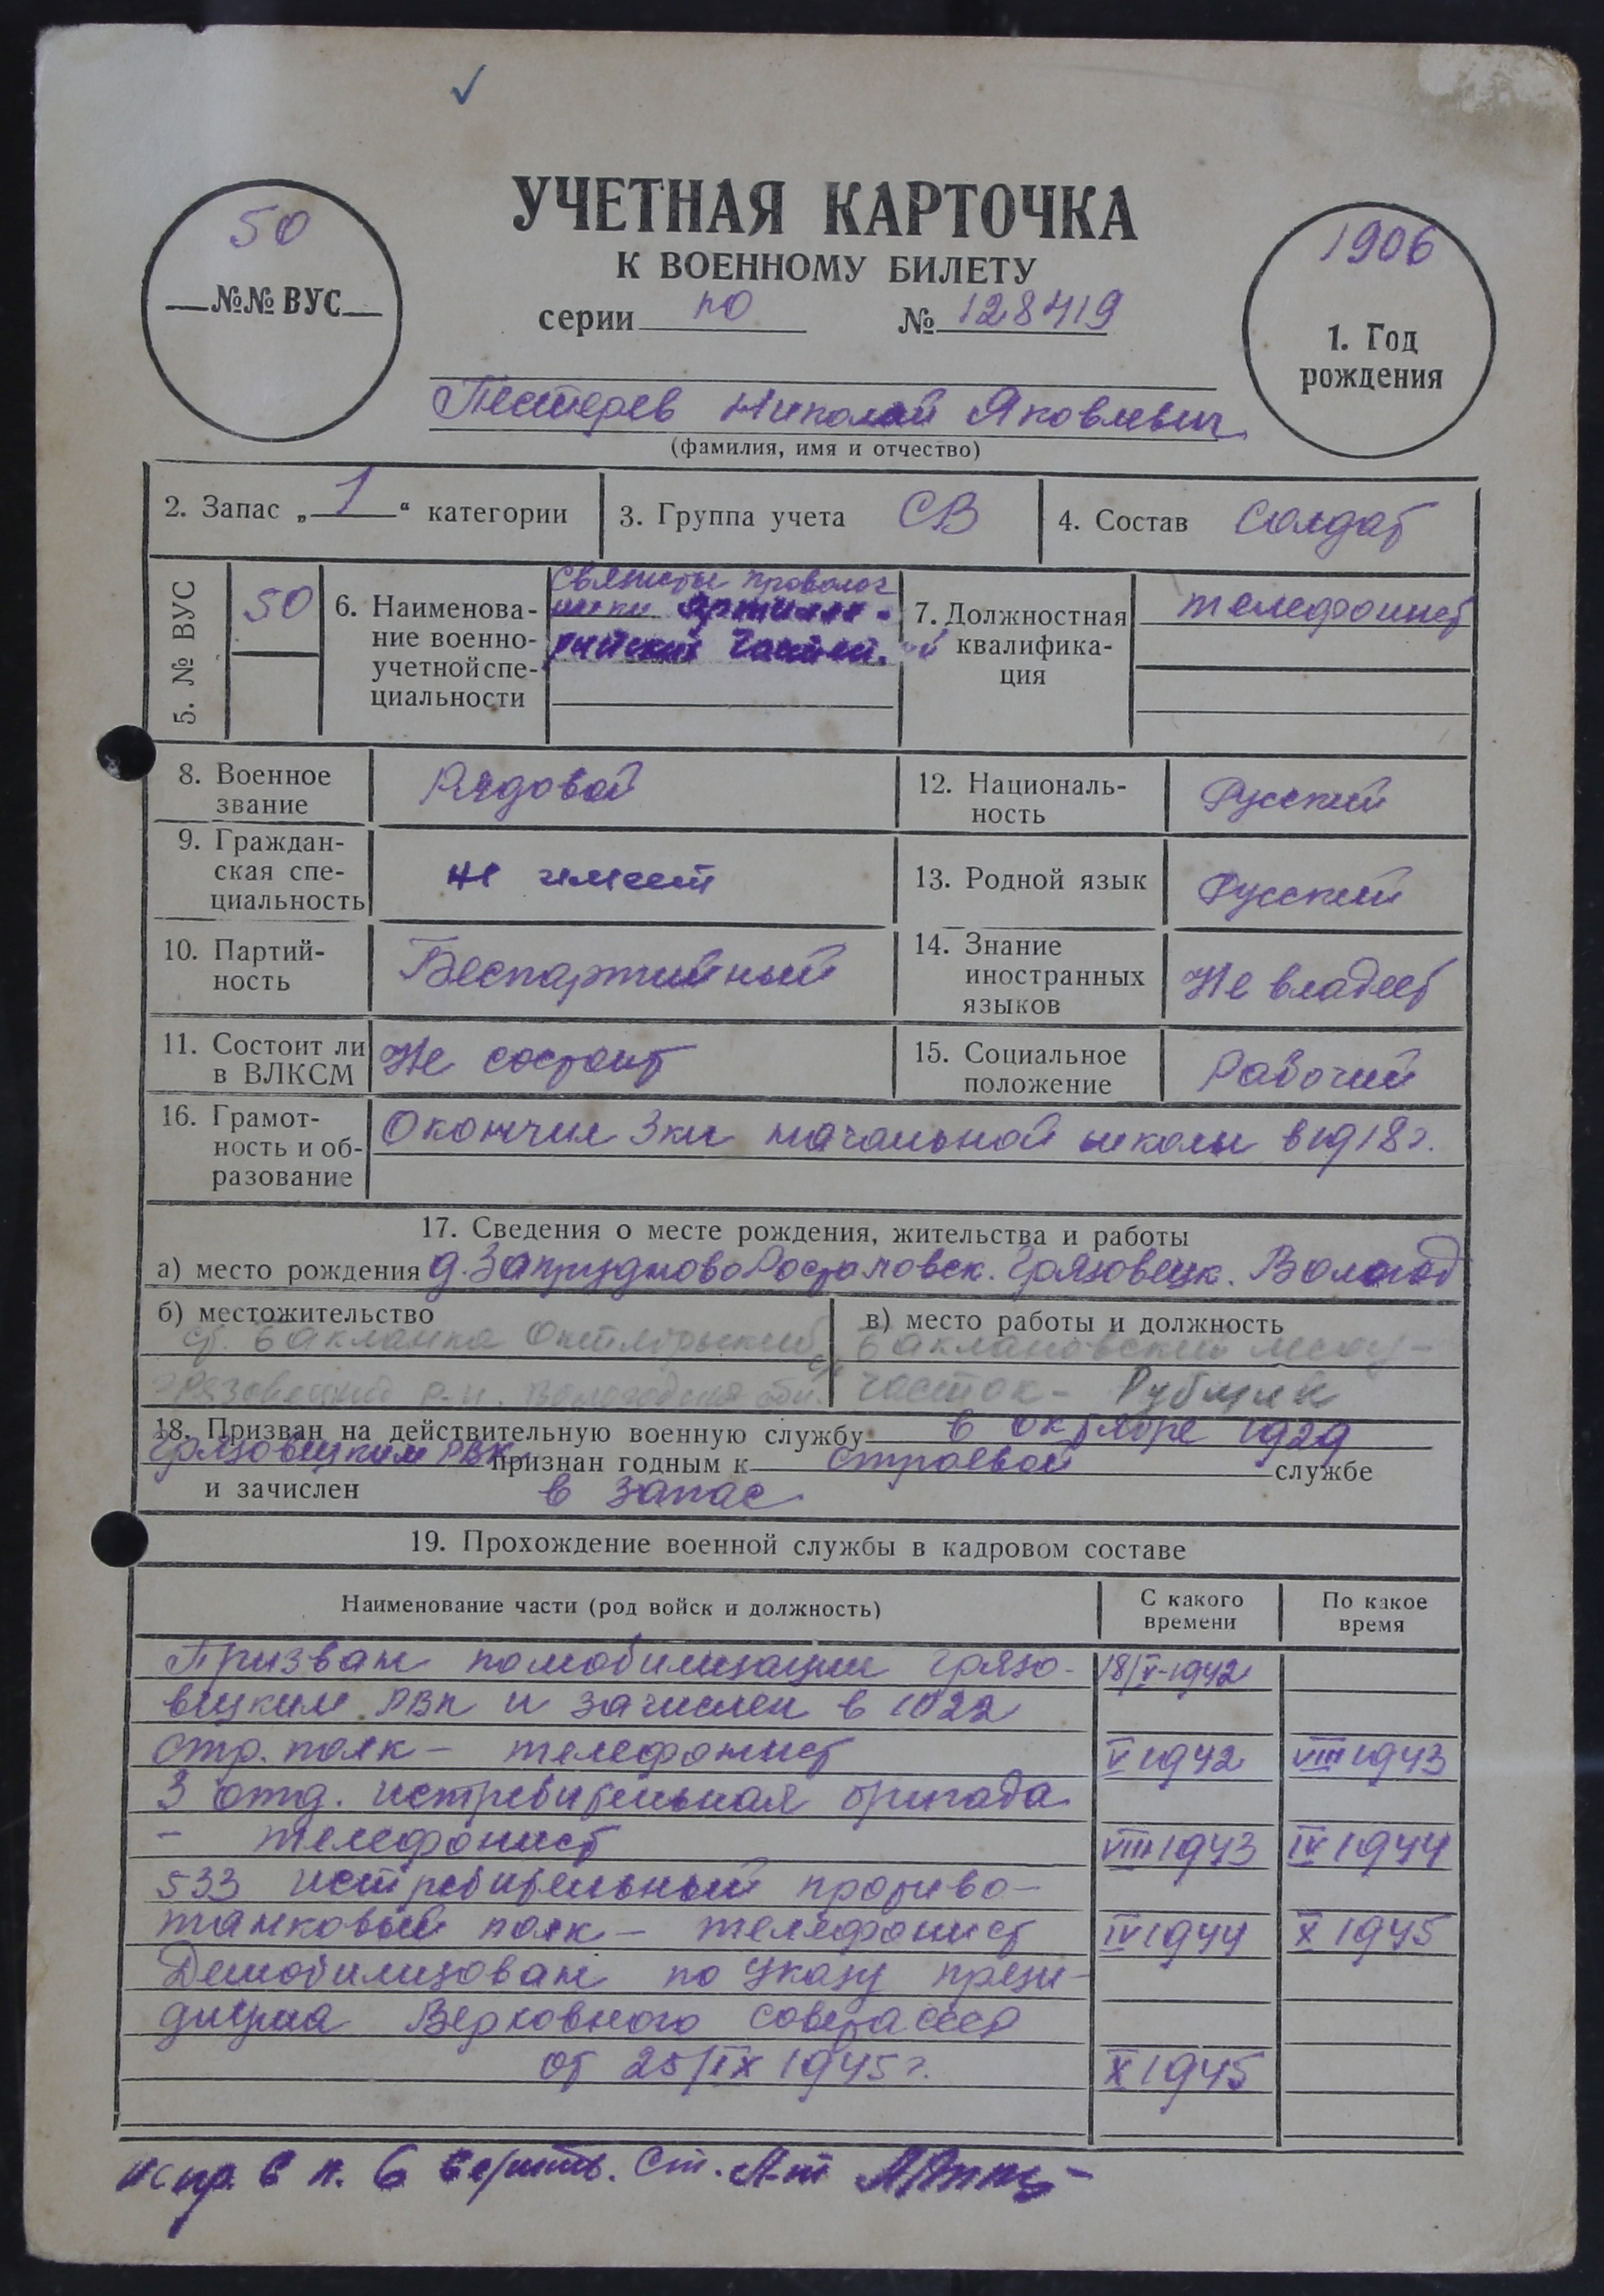 50
№№ ВУС
УЧЕТНАЯ КАРТОЧКА
К ВОЕННОМУ БИЛЕТУ
серии ПО № 128419
1906
1. Год
рождения
Пестерев Николай Яковлевич
(фамилия, имя и отчество)
2. Запас „1“ категории
3. Группа учета СВ
4. Состав Солдат
5. № ВУС
50
6. Наименова-
ние военно-
учетной спе-
циальности
Связисты проволоч
ники артилле-
рийских частей.
7. Должностная
квалифика-
ция
телефонист
8. Военное
звание
Рядовой
12. Националь-
ность
Русский
9. Граждан-
ская спе-
циальность
не имеет
13. Родной язык
Русский
10. Партий-
ность
Беспартийный
14. Знание
иностранных
языков
Не владеет
11. Состоит ли
в ВЛКСМ
Не состоит
15. Социальное
положение
Рабочий
16. Грамот-
ность и об-
разование
Окончил 3 кл начальной школы в 1918 г.
17. Сведения о месте рождения, жительства и работы
а) место рождения д. Запрудново Ростиловск. Грязовецк. Вологод
б) местожительство
ст. Бакланка Октябрьский
грязовецкий р-н. Вологодской обл.
в) место работы и должность
Баклановский лесоу-
часток - Рубщик
18. Призван на действительную военную службу в октябре 1929
Грязовецким РВК признан годным к строевой службе
и зачислен в запас
19. Прохождение военной службы в кадровом составе
Наименование части (род войск и должность)
С какого
времени
По какое
время
Призван по мобилизации Грязо- 18/V-1942
вецким РВК и зачислен в 1022
стр. полк - телефонист V 1942 VIII 1943
3 отд. истребительная бригада
- телефонист VIII 1943 IV 1944
533 истребительный противо-
танковый полк - телефонист IV 1944 X 1945
Демобилизован по Указу прези-
диума Верховного Совета СССР
от 25/IX 1945 г. X 1945
испр. в п. 6 верить. Ст. Л-т